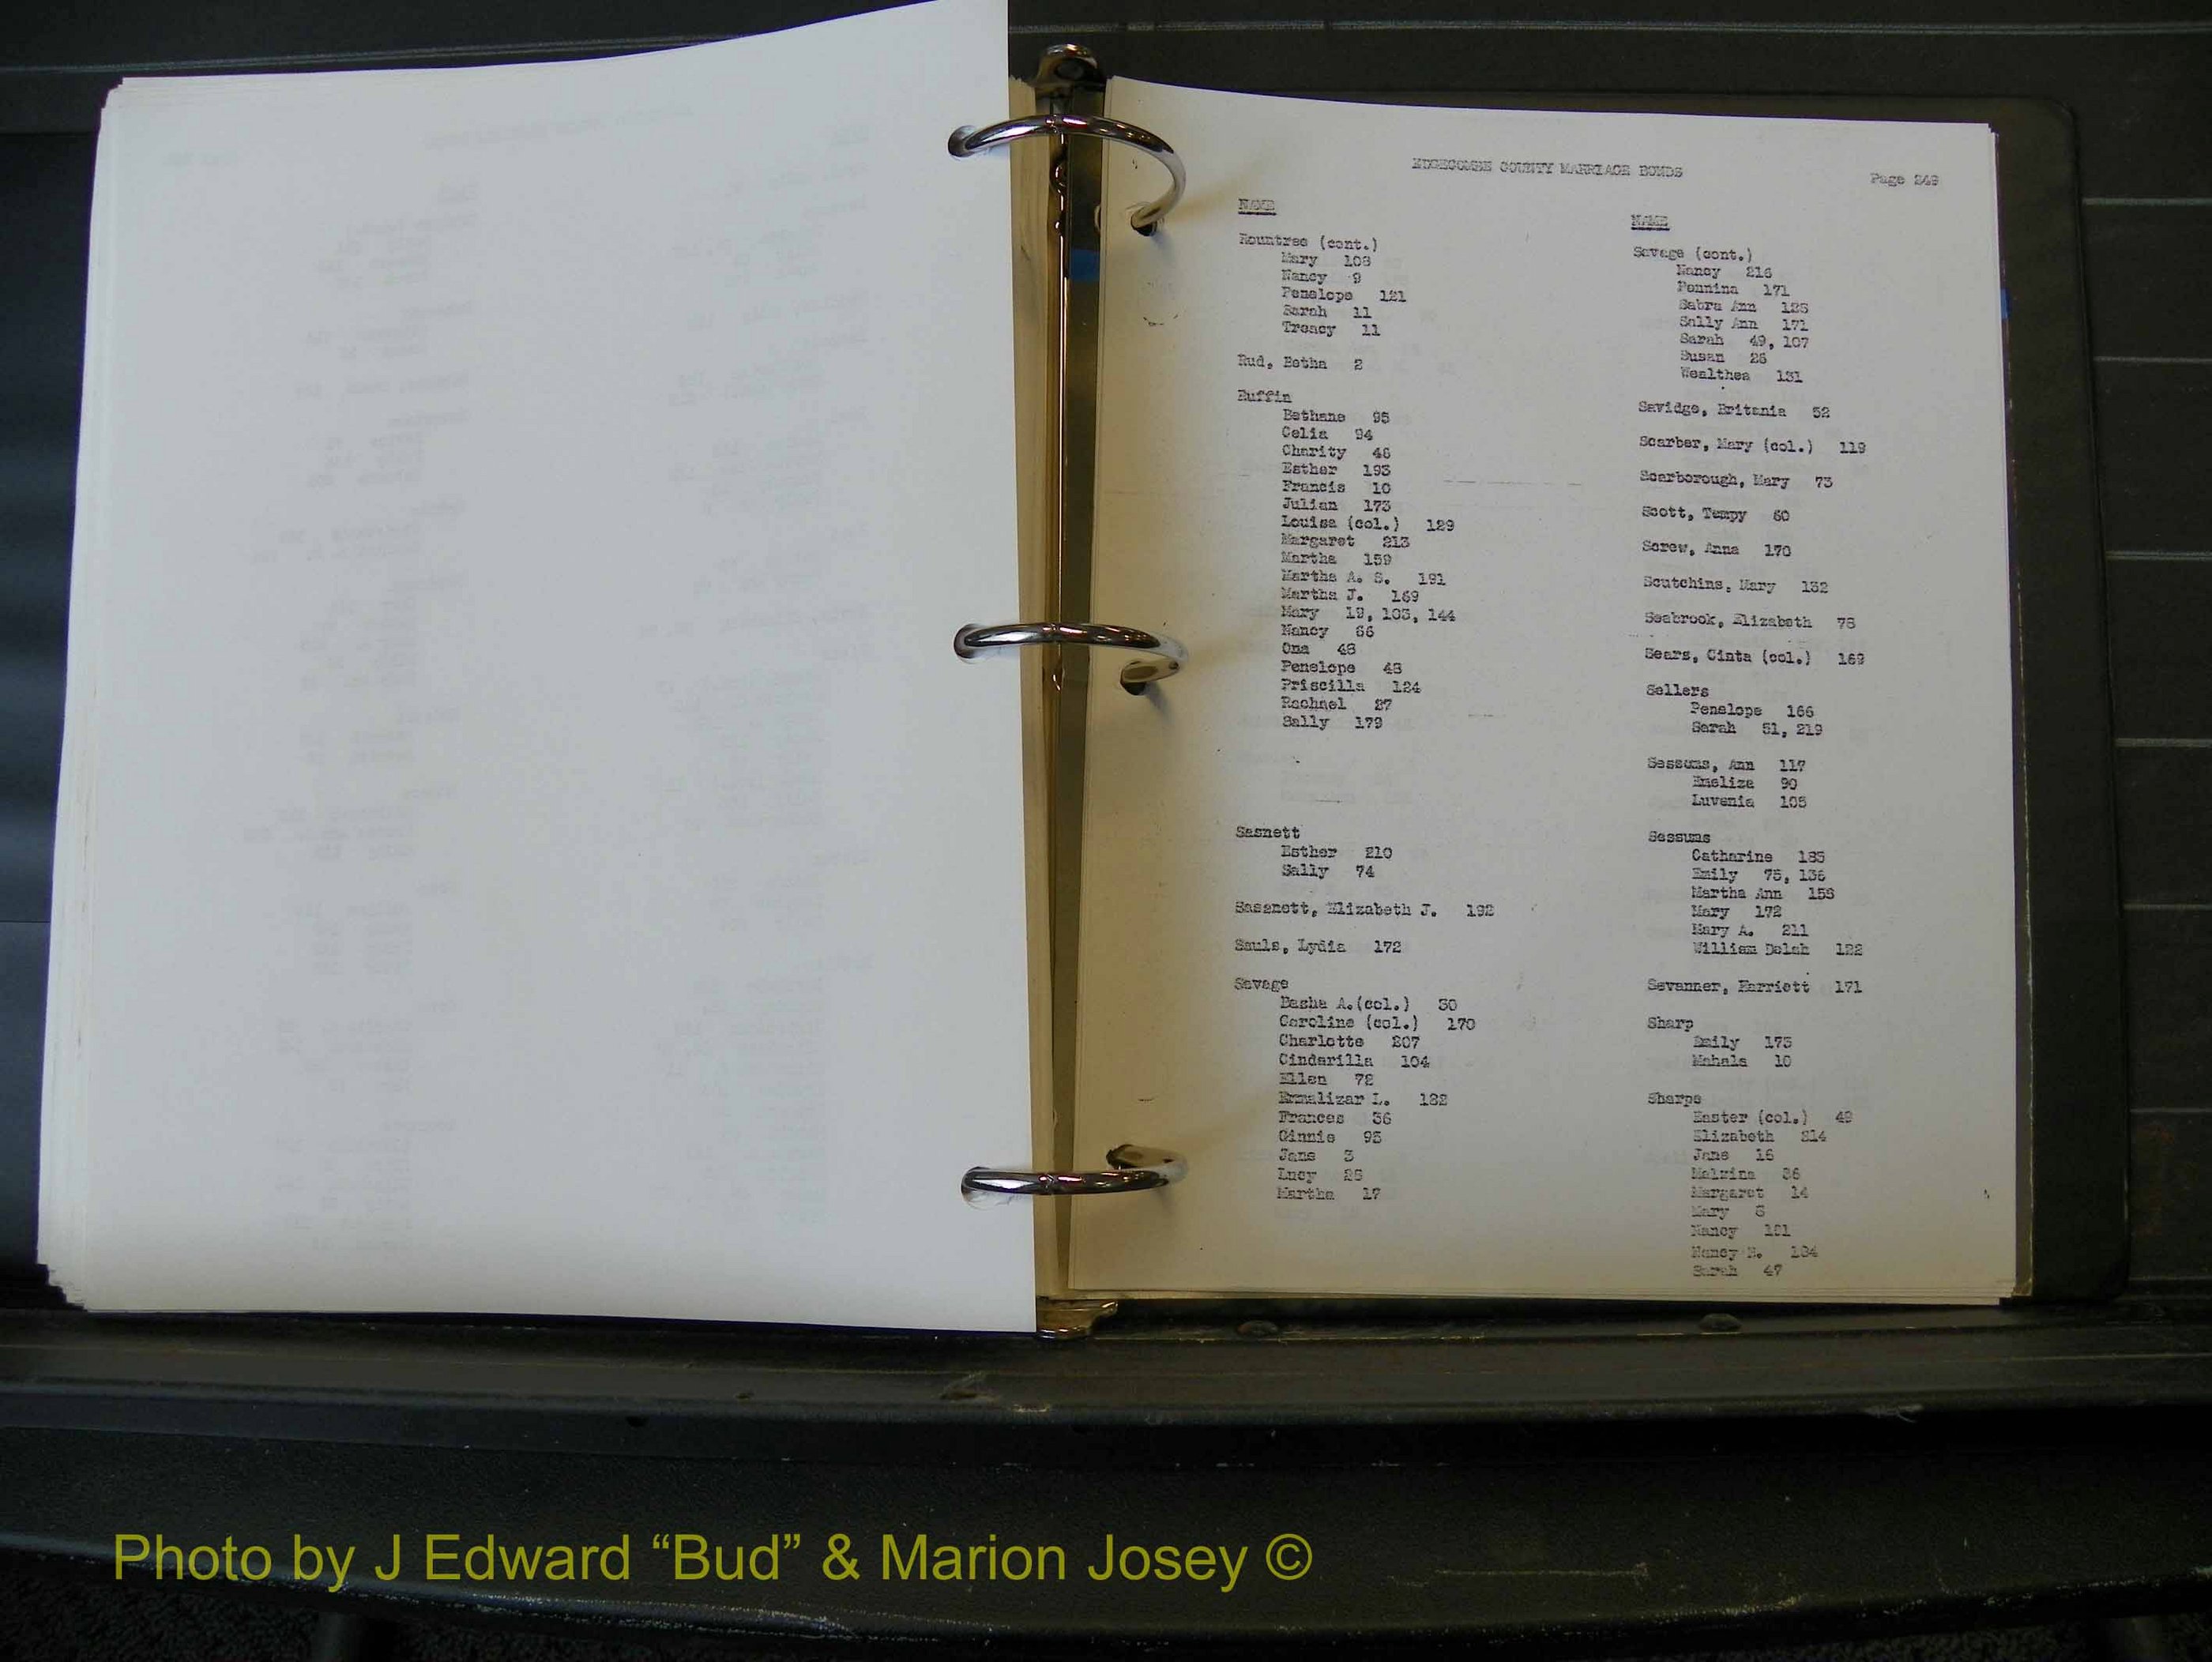 EDGECOMBE COUNTY MARRIAGE BONDS
Page 249
NAME
Rountree (cont.)
Mary 108
Nancy 9
Penelope 121
Sarah 11
Treacy 11
Rud, Betha 2
Ruffin
Bethane 95
Celia 94
Charity 46
Esther 193
Francis 10
Julian 173
Louisa (col.) 129
Margaret 213
Martha 159
Martha A. S. 191
Martha J. 169
Mary 19, 103, 144
Nancy 66
Ona 48
Penelope 43
Priscilla 124
Rachael 27
Sally 179
Sasnett
Esther 210
Sally 74
Sassnett, Elizabeth J. 192
Sauls, Lydia 172
Savage
Basha A.(col.) 30
Caroline (col.) 170
Charlotte 207
Cindarilla 104
Ellen 72
Ermalizar L. 182
Frances 36
Ginnie 93
Jane 3
Lucy 25
Martha 17
NAME
Savage (cont.)
Nancy 216
Pennina 171
Sabra Ann 125
Sally Ann 171
Sarah 49, 107
Susan 26
Wealthea 131
Savidge, Britania 52
Scarber, Mary (col.) 119
Scarborough, Mary 73
Scott, Tempy 60
Screw, Anna 170
Scutchins, Mary 132
Seabrook, Elizabeth 78
Sears, Cinta (col.) 169
Sellers
Penelope 166
Sarah 51, 219
Sessums, Ann 117
Emeliza 90
Luvenia 105
Sessums
Catharine 185
Emily 75, 136
Martha Ann 158
Mary 172
Mary A. 211
William Delah 122
Sevanner, Harriett 171
Sharp
Emily 175
Mahala 10
Sharpe
Easter (col.) 49
Elizabeth 214
Jane 16
Malzina 36
Margaret 14
Mary
Nancy 121
Nancy 184
Sarah 47
Photo by J Edward “Bud” & Marion Josey ©